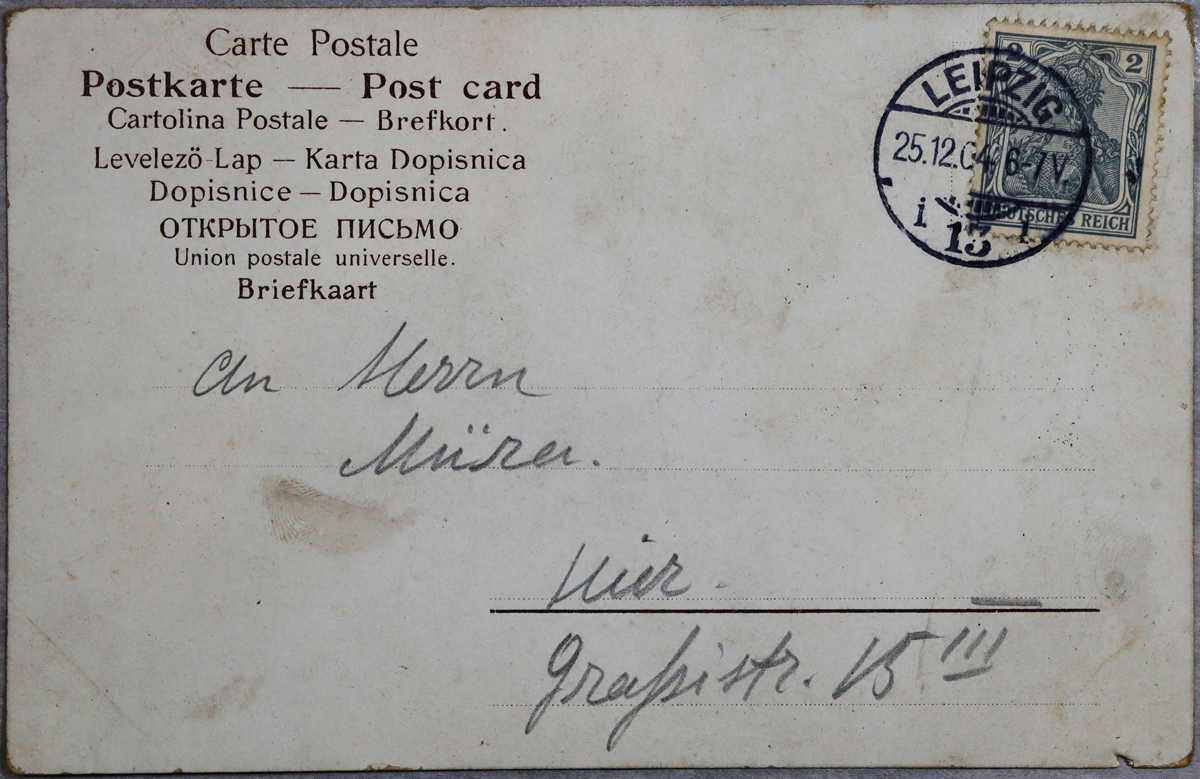 Carte Postale
Postkarte — Post card
Cartolina Postale — Brefkort.
Levelező-Lap — Karta Dopisnica
Dopisnice — Dopisnica
ОТКРЫТОЕ ПИСЬМО
Union postale universelle.
Briefkaart
2 2
LEIPZIG
25.12.04. 6-7V.
13
DEUTSCHES REICH
An Herrn
Hier.
Graßistr. 15 III